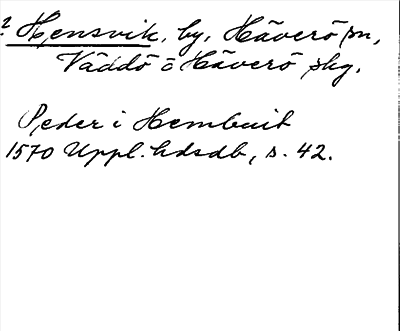 ? Hensvik, by, Häverö sn,
Väddö o Häverö skg.
Peder i Hembuit
1570 Uppl. hdsdb, s. 42.